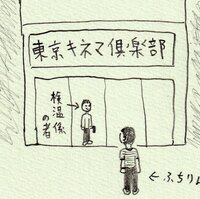 東京キネマ倶楽部
検温係
の者
←ふちりん